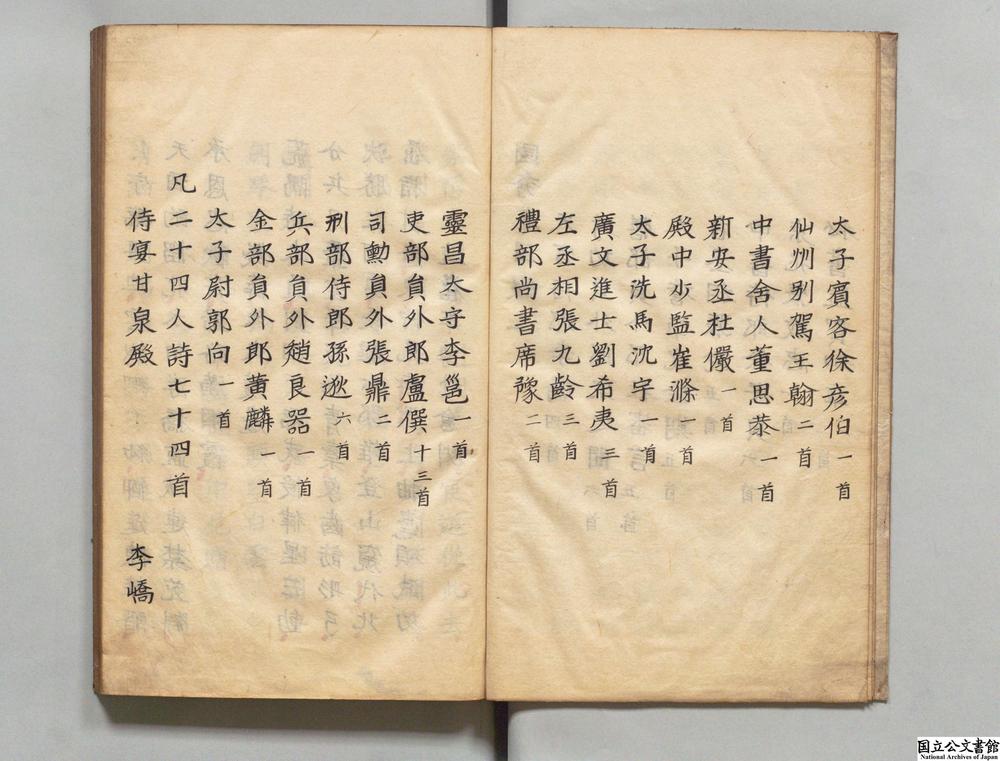 太子賓客徐彦伯一首
仙州别駕王翰二首
中書舍人董思恭一首
新安丞杜儼一首
殿中少監崔滌一首
太子洗馬沈宇一首
廣文進士劉希夷三首
左丞相張九齡三首
禮部尚書席豫二首
靈昌太守李邕一首
吏部負外郎盧僎十三首
司勳負外張鼎二首
刑部侍郎孫逖六首
兵部負外趙良器一首
金部負外郎黄麟一首
太子尉郭向一首
凡二十四人詩七十四首
侍宴甘泉殿 李嶠
国立公文書館
National Archives of Japan